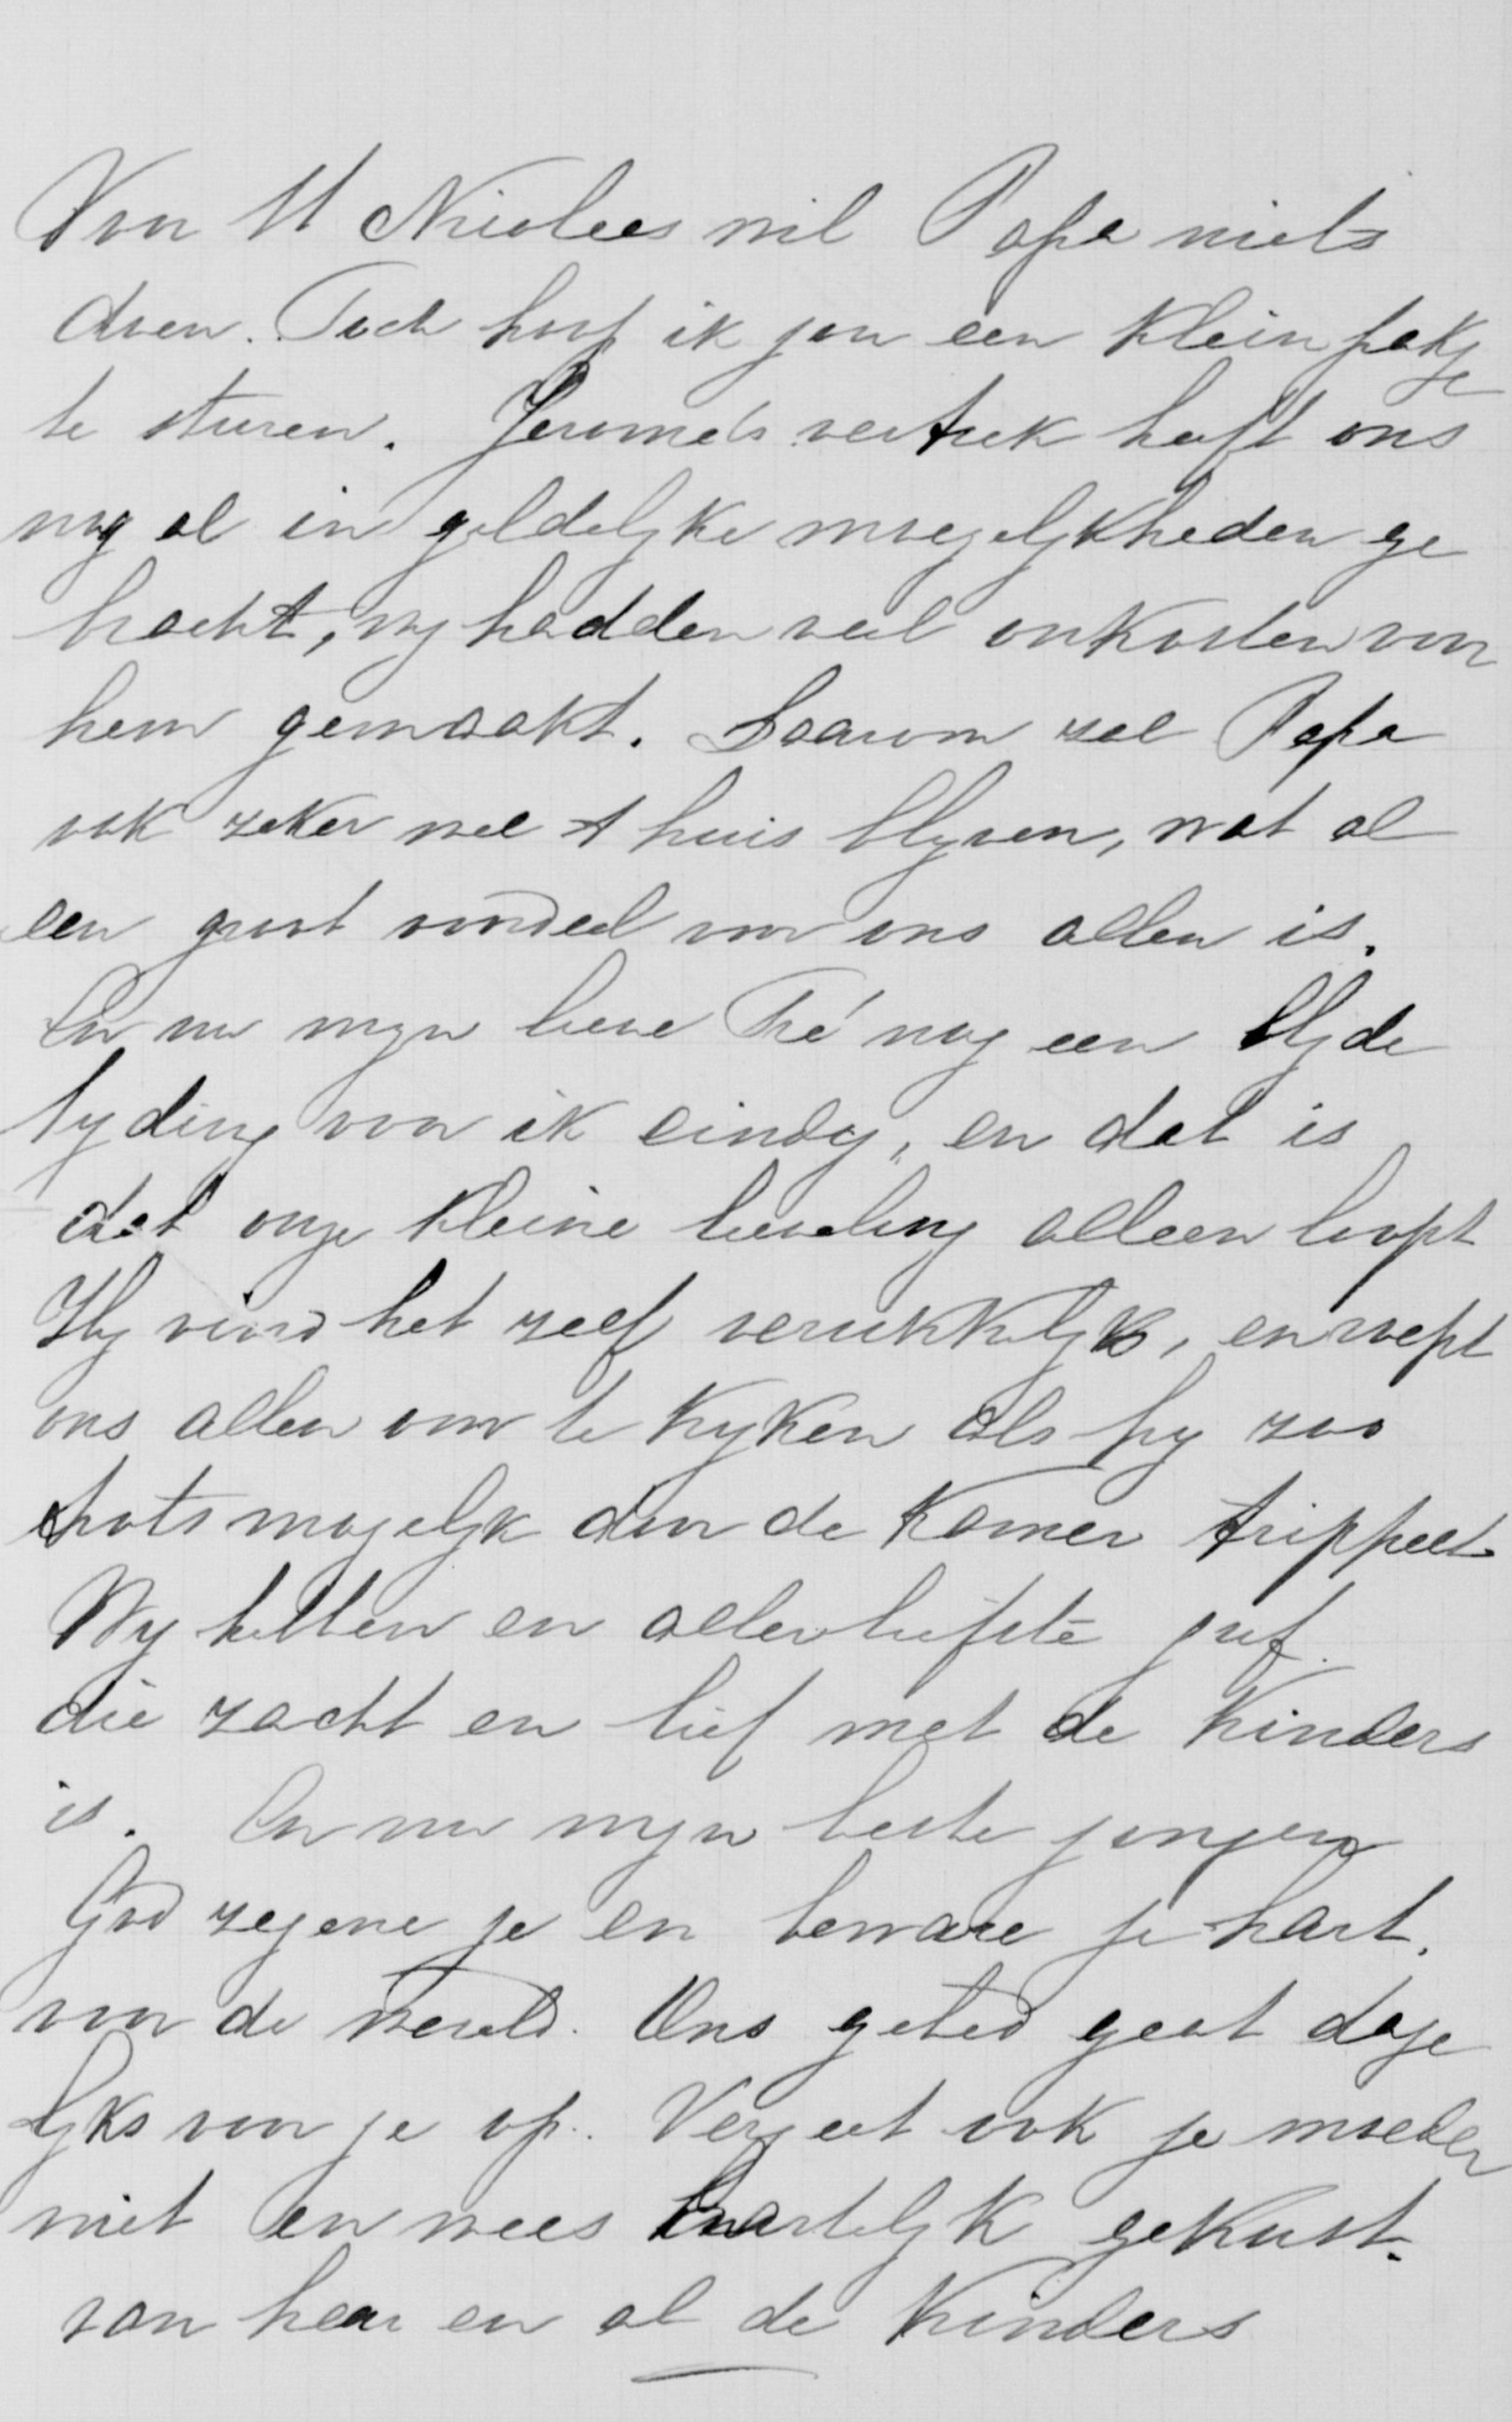 Voor St Nicolaas wil Papa niets
doen. Toch hoop ik jou een klein pakje
te sturen. Jerome's vertrek heeft ons
nog al in geldelyke moegelykheden ge
bracht, wy hadden veel onkosten voor
hem gemaakt. Daarom zal Papa
ook zeker wel t huis blyven, wat al
een groot voordeel voor ons allen is.
En nu myn lieve Fré nog een blyde
tyding voor ik eindig, en dat is
dat onze kleine lieveling alleen loopt
Hy vind het zelf verukkelyk, en roept
ons allen om te kyken als hy zoo
trots mogelyk door de kamer trippelt
Wy hebben en allerliefste juf
die zacht en lief met de kinders
is. En nu myn beste jongen
God zegene je en beware je hart.
voor de wereld. Ons gebed gaat dage
lyks voor je op. Vergeet ook je moeder
niet en wees hartelyk gekust.
van haar en al de kinders